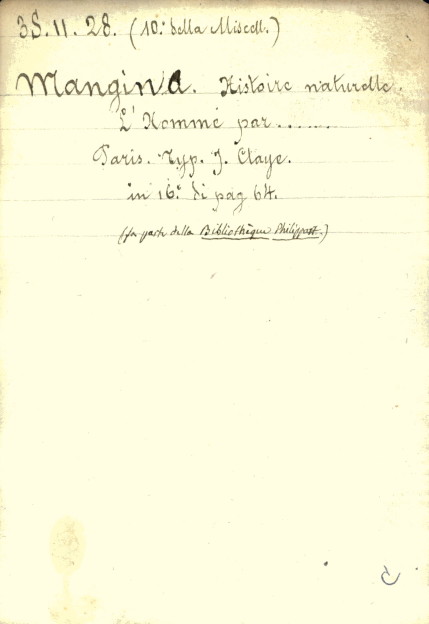 38.11.28. (10.º della Miscell.)
Mangin A. Histoire naturelle.
L'Homme par.......
Paris. Typ. J. Claye.
in 16.º di pag 64.
(fa parte della Bibliothèque Philippart.)